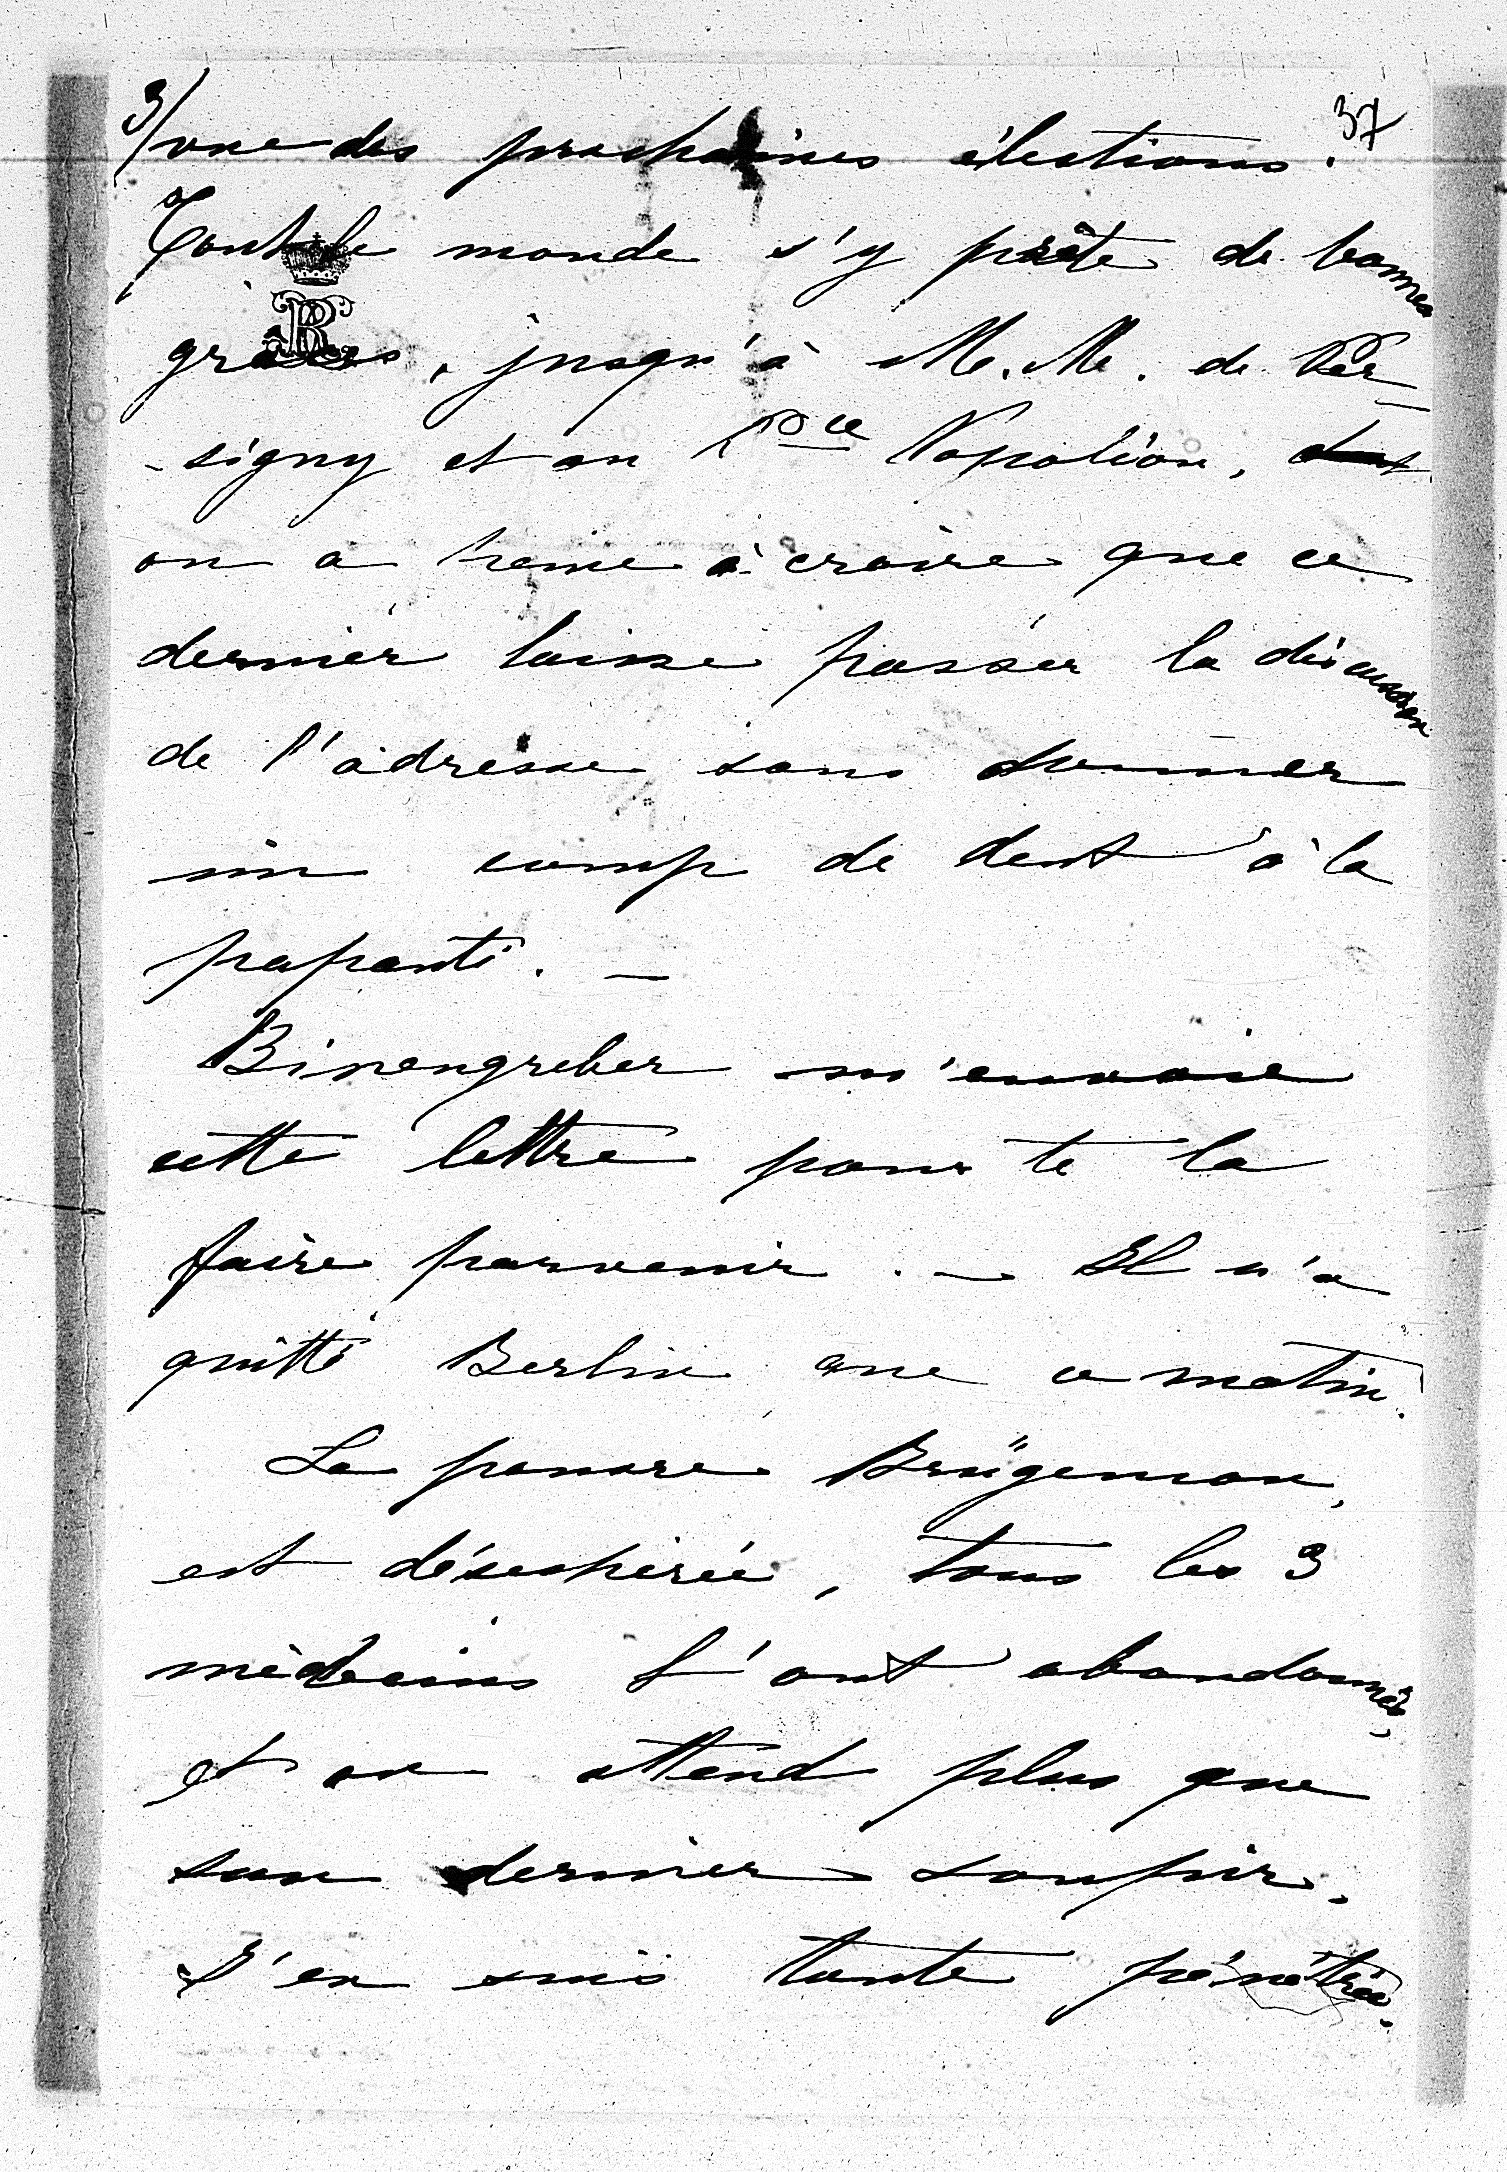 3/ vue des prochaines élections.
37
Tout le monde s'y prête de bonnes
grâces, jusqu'à M. M. de Per-
-signy et au Pce Napoléon,
on a peine à croire que ce
dernier laisse passer la discussion
de l'adresse sans donner
un coup de dent à la
papauté. —
Binengreber m'envoie
cette lettre pour te la
faire parvenir. — Il n'a
quitté Berlin que ce matin.
La pauvre Brügeman,
est désespérée, tous les 3
médecins l'ont abandonnée,
et on attend plus que
son dernier soupir.
J'en suis toute pénétrée.